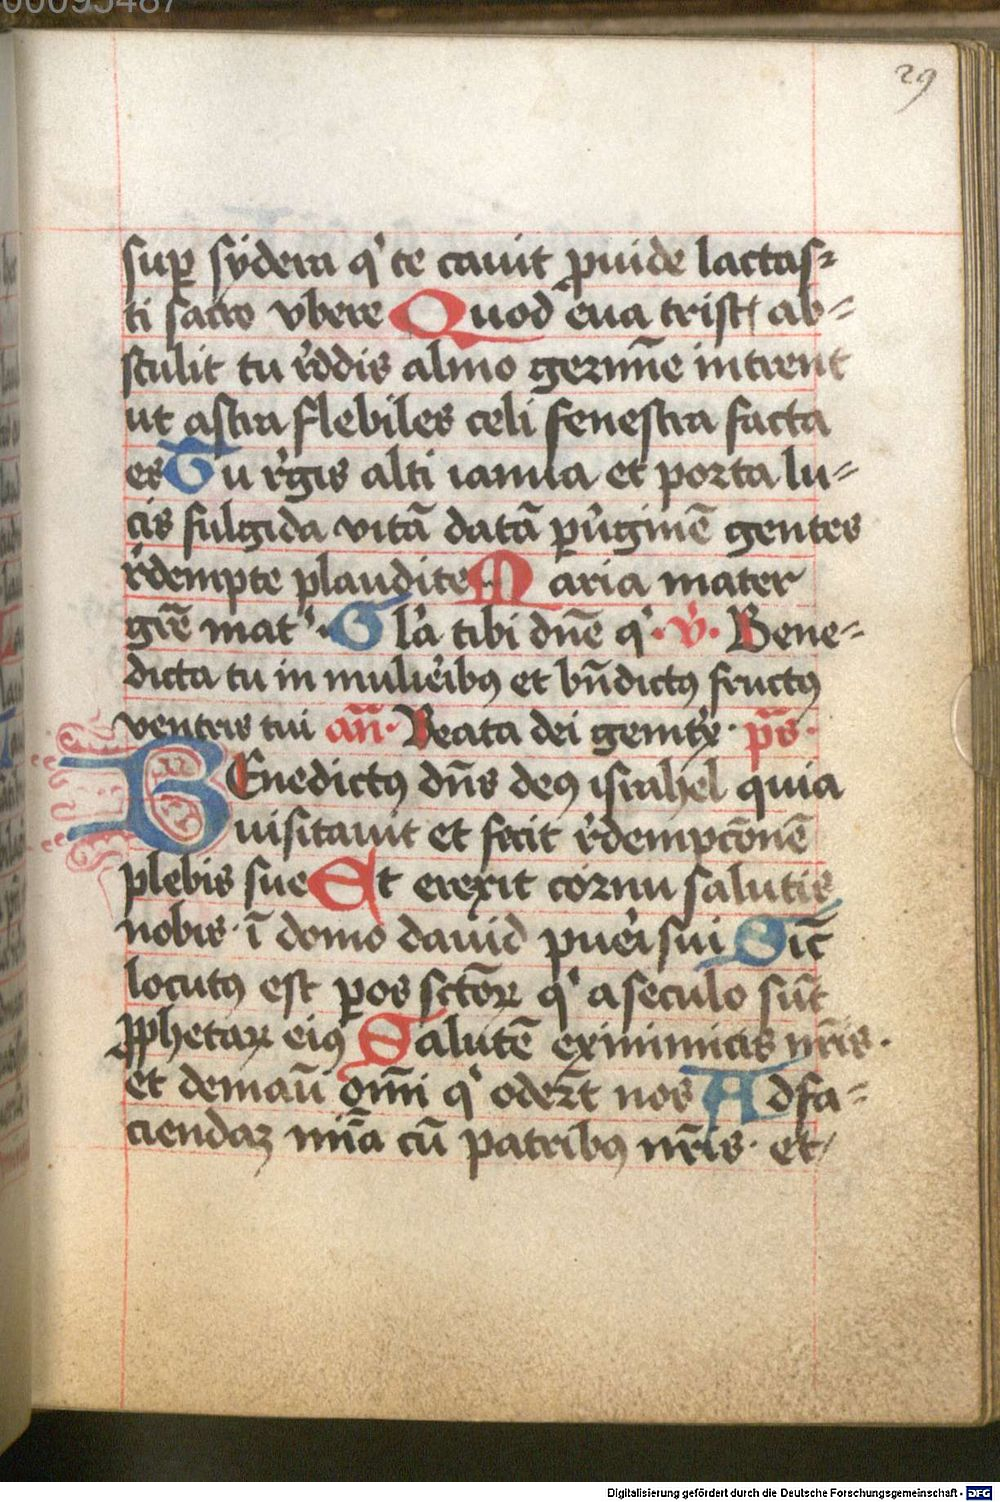 00095487
29
sup sydera q' te cauit puide lactas=
ti sacro vbere Quod eua trist' ab=
stulit tu r'ddis almo germīe intrent
ut astra flebiles celi fenestra facta
es Tu r'gis alti ianua et porta lu=
cis fulgida vitā datā p' u'ginē gentes
r'dempte plaudite Maria mater
grē mat'· Gl'a tibi dn̄e q'· v̄· Bene=
dicta tu in mulierib9 et bn̄dict9 fruct9
ventris tui an̄· Beata dei genitx'· ps̄·
BEnedict9 dn̄s de9 israhel quia
uisitauit et fecit r'dempcōnē
plebis sue Et erexit cornu salutis
nobis· ī domo dauid pueri sui Sic̄
locut9 est p os sctōꝝ q' a seculo sūt
ꝓphetaꝝ ei9 Salutē ex inimicis nr̄is·
et de manū om̄i q' oder̄t nos Ad fa=
ciendaꝫ mīa cū patrib9 nr̄is· et/
Digitalisierung gefördert durch die Deutsche Forschungsgemeinschaft - DFG